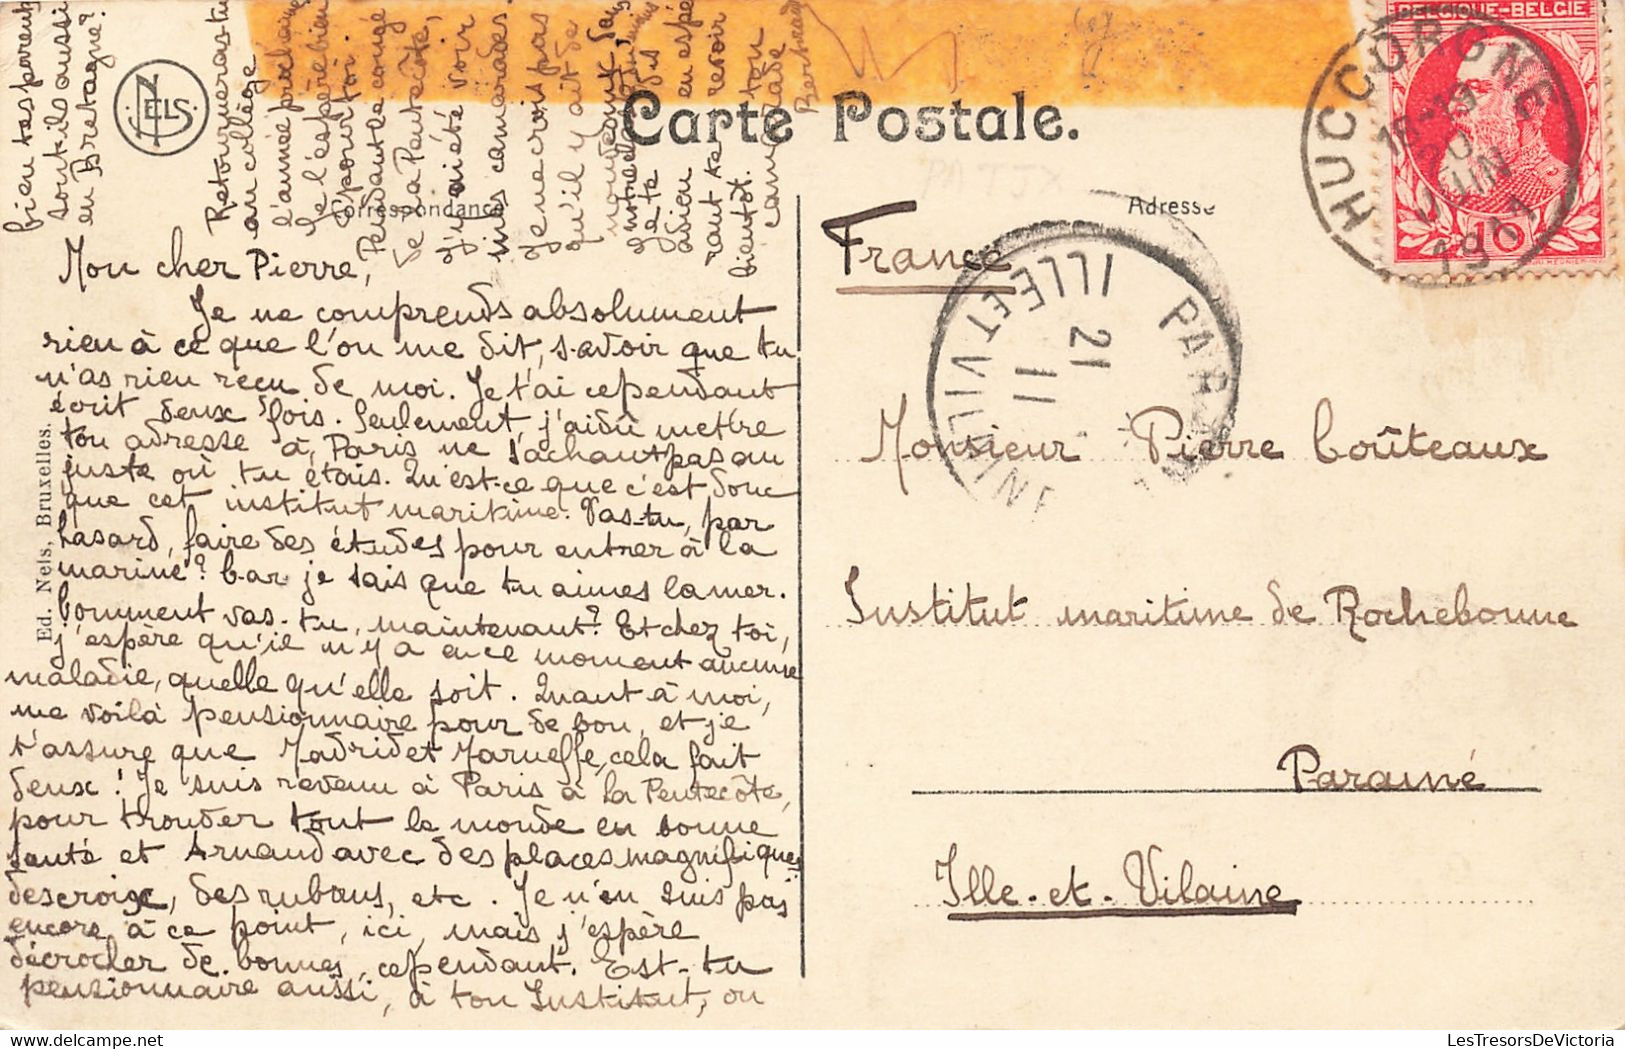 Carte Postale.
Correspondance
Adresse
Ed. Nels, Bruxelles.
NELS
Mon cher Pierre,
Je ne comprends absolument
rien à ce que l'on me dit, savoir que tu
n'as rien reçu de moi. Je t'ai cependant
écrit deux fois. Seulement, j'ai dû mettre
ton adresse à Paris ne sachant pas au
juste où tu étais. Qu'est-ce que c'est donc
que cet institut maritime. Vas-tu, par
hasard, faire des études pour entrer à la
marine? Car je sais que tu aimes la mer.
Comment vas-tu, maintenant? Et chez toi,
j'espère qu'il n'y a en ce moment aucune
maladie, quelle qu'elle soit. Quant à moi,
me voilà pensionnaire pour de bon, et je
t'assure que Madrid et Maruelle, cela fait
deux! Je suis revenu à Paris à la Pentecôte,
pour trouver tout le monde en bonne
santé et Arnaud avec des places magnifiques
des croix, des rubans, etc. Je n'en suis pas
encore à ce point, ici, mais j'espère
décrocher de bonnes, cependant. Est-tu
pensionnaire aussi, à ton Institut, ou
bien tes parents
sont-ils aussi
en Bretagne?
Retourneras-tu
au collège
l'année prochaine
Je l'espère bien
pour toi.
Pendant le congé
de la Pentecôte,
j'ai été voir
mes camarades.
Je ne crois pas
qu'il y ait de
nouveaux dans
notre
Je te dis
adieu en espé
rant te revoir
bientôt. ton
camarade
Bertrand
BELGIQUE-BELGIE
10
HUCCORGNE
18-19
20
JUIN
1911
France
PARAMÉ
21
11
ILLE ET VILAINE
Monsieur Pierre Coûteaux
Institut maritime de Rochebonne
Paramé
Ille-et-Vilaine
LesTresorsDeVictoria